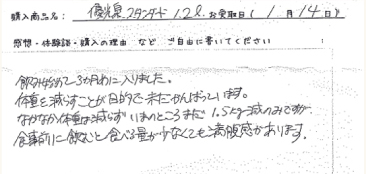 購入商品名: 優光泉スタンダード 1.2ℓ お受取日(1月14日)
感想・体験談・購入の理由 など ご自由に書いてください
飲み始めて3か月めに入りました。
体重を減らすことが目的で未だがんばっています。
なかなか体重は減らず いまのところまだ 1.5kg減のみですが、
食事前に飲むと食べる量が少なくても満腹感があります。